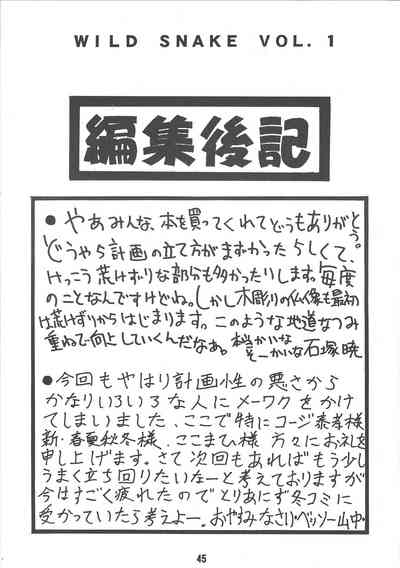 WILD SNAKE VOL. 1
編集後記
● やあみんな、本を買ってくれてどうもありがとう。
どうやら計画の立て方がまずかったらしくて、
けっこう荒けずりな部分も多かったりします。毎度
のことなんですけどね。しかし木彫りの仏像も最初
は荒けずりからはじまります。このような地道なつみ
重ねで向上していくんだなあ。
そーかいな石塚暁
● 今回もやはり計画性の悪さから
かなりいろいろな人にメーワクをかけ
てしまいました、ここで特にコージ泰者様
新・春夏秋冬様、ここまひ様 方々にお礼を
申し上げます。さて次回もあればもう少し
うまく立ち回りたいなーと考えておりますが
今はすごく疲れたのでとりあえず冬コミに
受かっていたら考えよー。おやすみなさい・ベッソー山中・
45